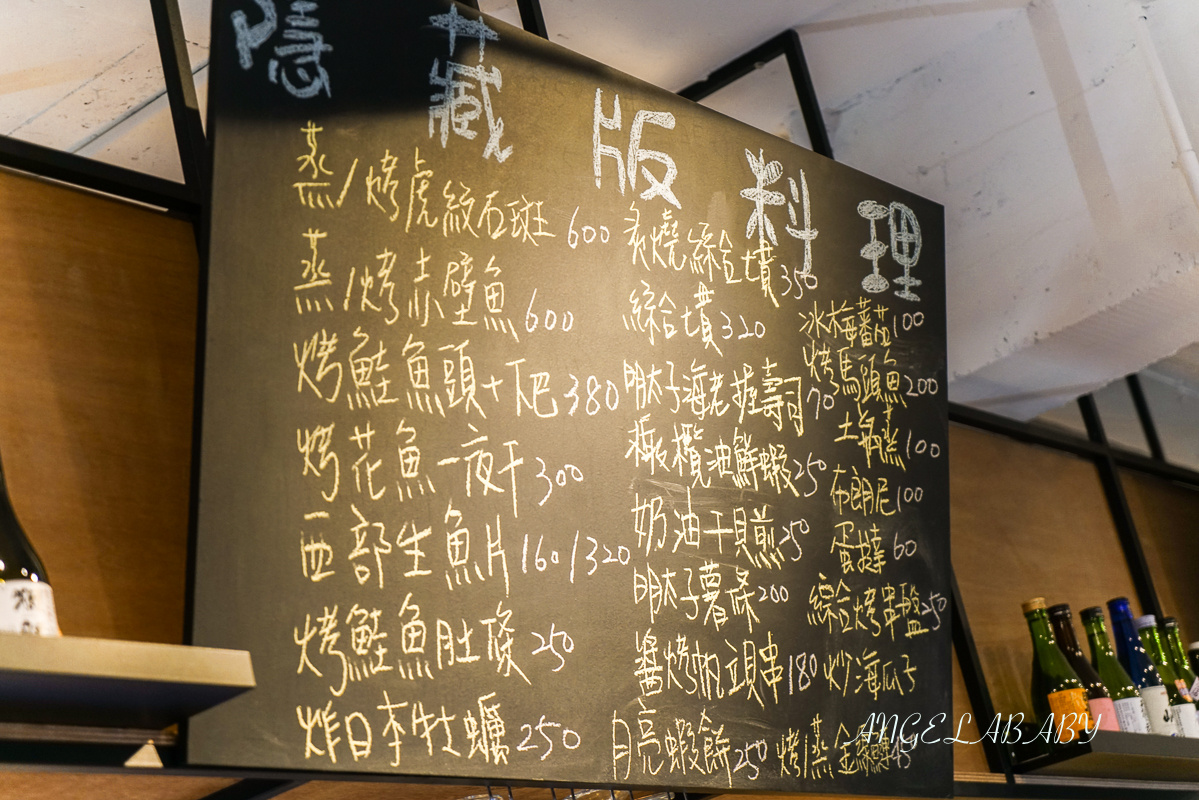 隱藏版料理
蒸/烤虎紋石斑 600
蒸/烤赤壁魚 600
烤鮭魚頭+下巴 380
烤花魚一夜干 300
西部生魚片 160/320
烤鮭魚肚條 250
炸日本牡蠣 250
炙燒綜合墳 350
綜合墳 320
明太子海老握壽司 70
橄欖油鮮蝦 250
奶油干貝煎 250
明太子薯條 200
醬烤帆頭串 180
月亮蝦餅 250
冰梅蕃茄 100
烤馬頭魚 200
土瓶蒸 100
布朗尼 100
蛋撻 60
綜合烤串盤 250
炒海瓜子
烤/蒸金
ANGELABABY